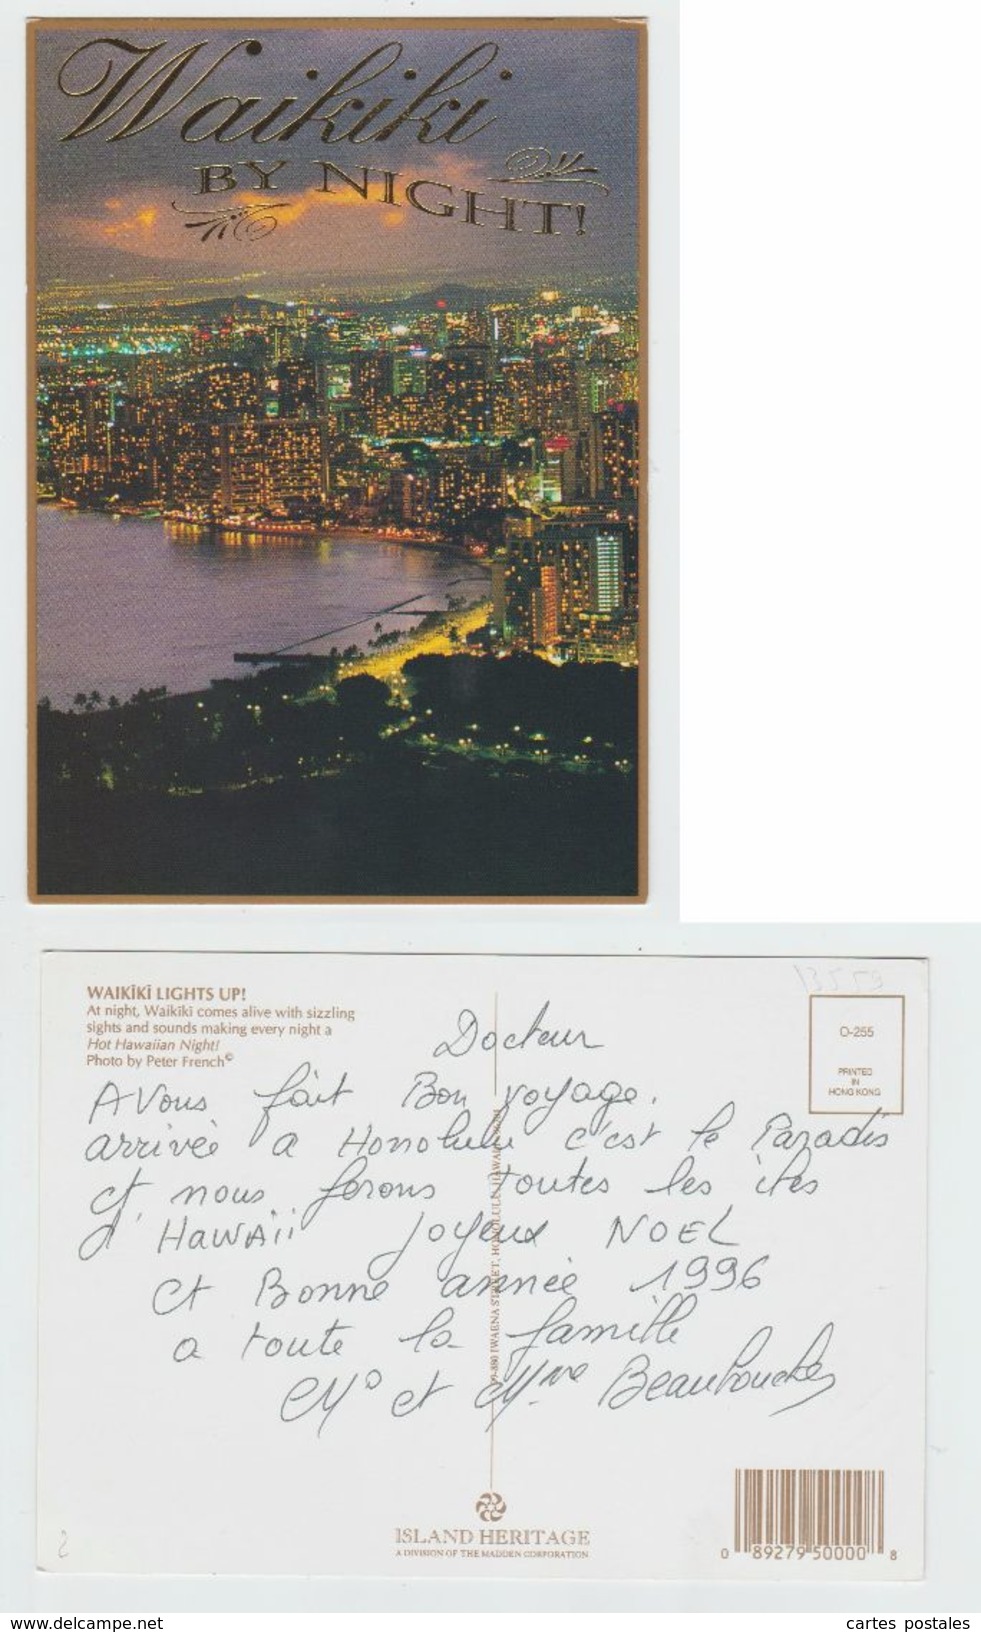 Waikiki
BY NIGHT!
13559
WAIKĪKĪ LIGHTS UP!
At night, Waikīkī comes alive with sizzling
sights and sounds making every night a
Hot Hawaiian Night!
Photo by Peter French©
O-255
PRINTED
IN
HONG KONG
Docteur
AVous fait Bon voyage.
arrivée a Honolulu c'est le Paradis
et nous ferons toutes les iles
d'HAWAii Joyeux NOEL
et Bonne année 1996
a toute la famille
Mr et Mme
99-880 IWAENA STREET, HONOLULU, HAWAII
ISLAND HERITAGE
A DIVISION OF THE MADDEN CORPORATION
0 89279 50000 8
2
www.delcampe.net
cartes postales